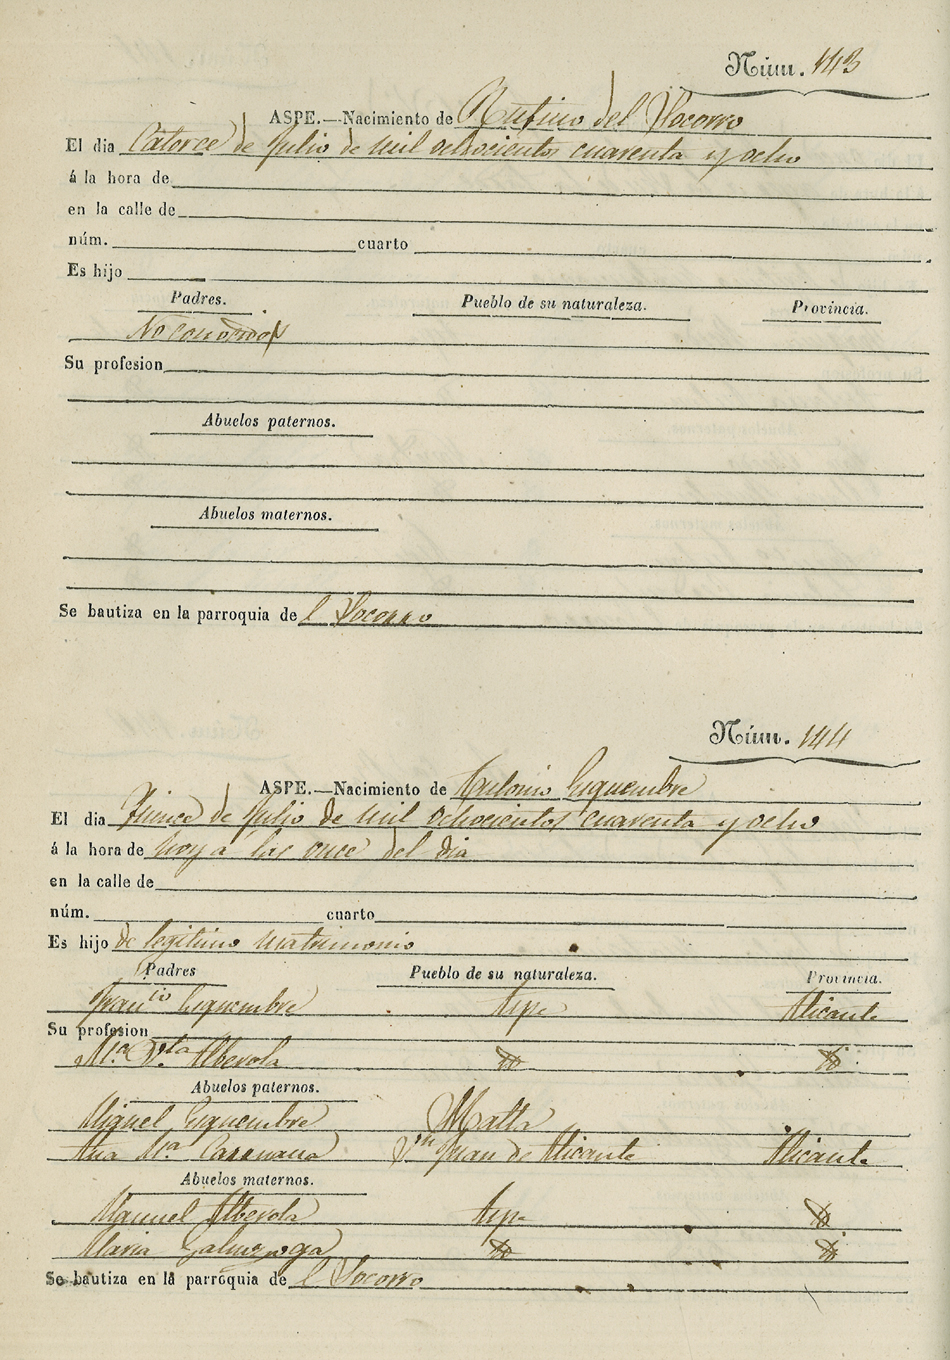 Núm. 143
ASPE.—Nacimiento de Rufino del Socorro
El dia Catorce de Julio de mil ochocientos cuarenta y ocho
á la hora de
en la calle de
núm. cuarto
Es hijo
Padres. Pueblo de su naturaleza. Provincia.
No conocidos
Su profesion
Abuelos paternos.
Abuelos maternos.
Se bautiza en la parroquia de l Socorro
Núm. 144
ASPE.—Nacimiento de Antonio
El dia Quince de Julio de mil ochocientos cuarenta y ocho
á la hora de hoy a las once del dia
en la calle de
núm. cuarto
Es hijo de legitimo matrimonio
Padres Pueblo de su naturaleza. Provincia.
Franco Aspe Alicante
Su profesion
Ma Alberola
Abuelos paternos.
Miguel Malta
Ana Ma Caruana Sn Juan de Alicante Alicante
Abuelos maternos.
Manuel Alberola Aspe
Maria
Se bautiza en la parroquia de l Socorro